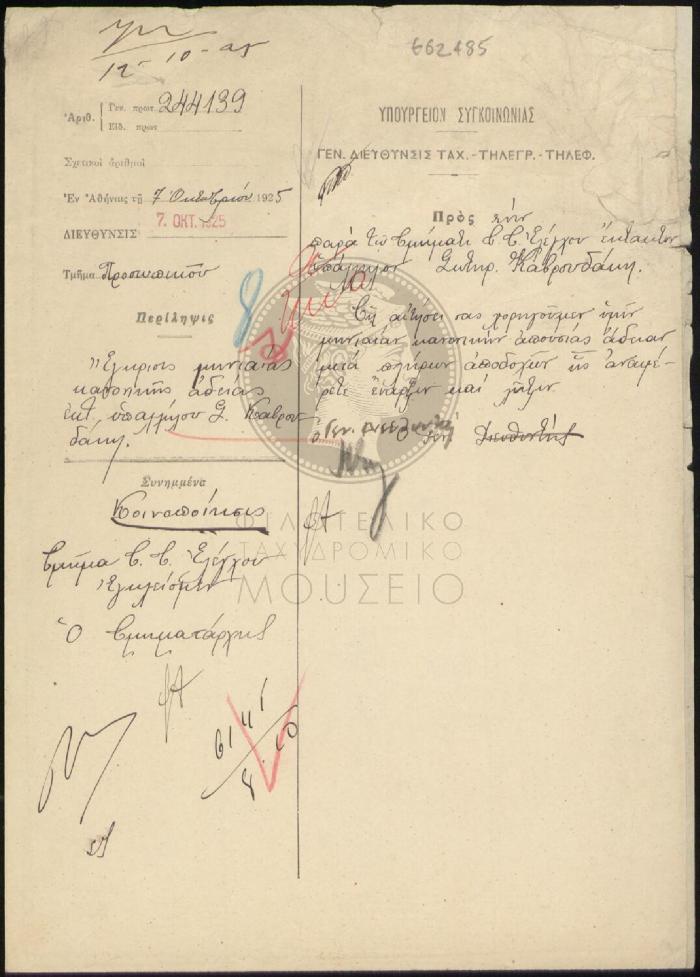 12-10-25
662485
Ἀριθ. Γεν. πρωτ. 244139
Εἰδ. πρωτ.
Σχετικοὶ ἀριθμοὶ
Ἐν Ἀθήναις τῇ 7 Ὀκτωβρίου 1925
7. ΟΚΤ. 1925
ΔΙΕΥΘΥΝΣΙΣ
Τμῆμα Προσωπικοῦ
Περίληψις
Ἔγκρισις μηνιαίας
κανονικῆς ἀδείας
ἐκτ. ὑπαλλήλου Σ. Καβρου-
δάκη.
Συνημμένα
Κοινοποίησις
Τμῆμα Τ. Τ. Ἐλέγχου
Ὁ Τμηματάρχης
ΥΠΟΥΡΓΕΙΟΝ ΣΥΓΚΟΙΝΩΝΙΑΣ
ΓΕΝ. ΔΙΕΥΘΥΝΣΙΣ ΤΑΧ.-ΤΗΛΕΓΡ.-ΤΗΛΕΦ.
Πρὸς τὸν
παρὰ τῷ Τμήματι Τ. Τ. Ἐλέγχου ἔκτακτον
ὑπάλληλον Σωτηρ. Καβρουδάκη.
Τῇ αἰτήσει σας χορηγοῦμεν ὑμῖν
μηνιαίαν κανονικὴν ἀπουσίας ἄδειαν
μετὰ πλήρων ἀποδοχῶν ἧς ἀναφέ-
ρετε ἔναρξιν καὶ λῆξιν.
Ὁ Γεν. Διευθυντής
Διευθυντής
ΦΙΛΟΤΕΛΙΚΟ
ΤΑΧΥΔΡΟΜΙΚΟ
ΜΟΥΣΕΙΟ